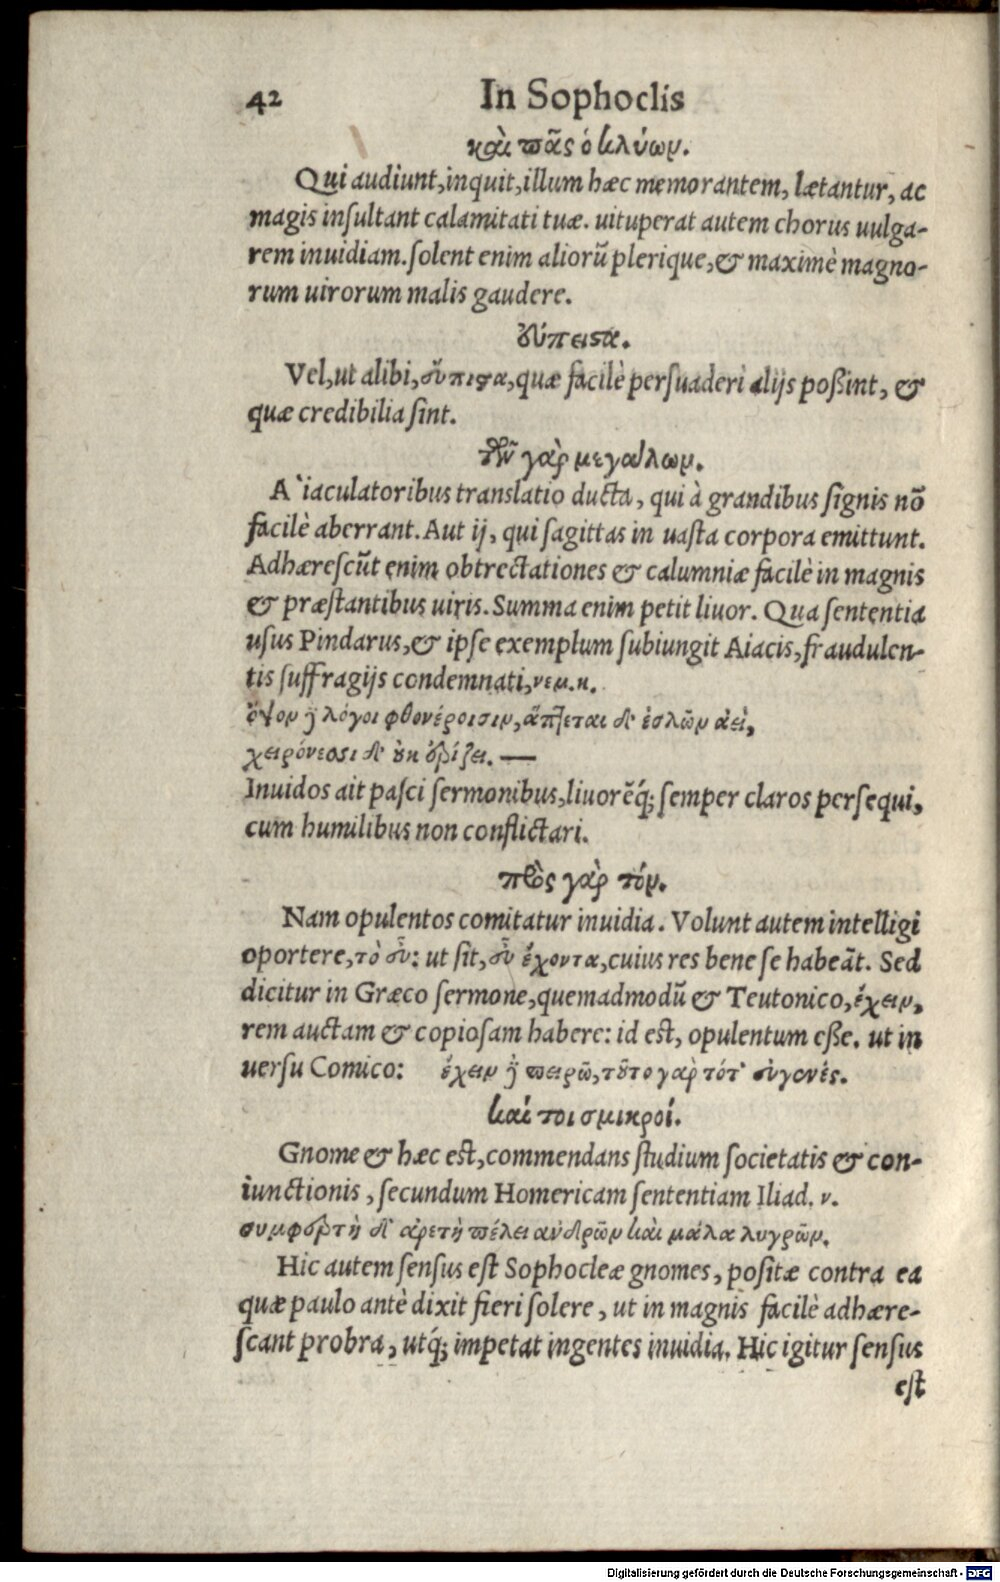 42 In Sophoclis
καὶ πᾶς ὁ κλύων.
Qui audiunt, inquit, illum hæc memorantem, lætantur, ac
magis insultant calamitati tuæ. uituperat autem chorus uulga-
rem inuidiam. solent enim aliorũ plerique, & maximè magno-
rum uirorum malis gaudere.
εὔπειστα.
Vel, ut alibi, εὔπιστα, quæ facilè persuaderi alijs poßint, &
quæ credibilia sint.
τῶν γὰρ μεγάλων.
A iaculatoribus translatio ducta, qui à grandibus signis nõ
facilè aberrant. Aut ij, qui sagittas in uasta corpora emittunt.
Adhærescũt enim obtrectationes & calumniæ facilè in magnis
& præstantibus uiris. Summa enim petit liuor. Qua sententia
usus Pindarus, & ipse exemplum subiungit Aiacis, fraudulen-
tis suffragijs condemnati, νεμ.κ.
ὄψον ἢ λόγοι φθονέροισιν, ἅπτεται δ' ἐσλῶν ἀεὶ,
χειρόνεσσι δ' οὐκ ἐρίζει. —
Inuidos ait pasci sermonibus, liuorẽq́; semper claros persequi,
cum humilibus non conflictari.
πρὸς γὰρ τόν.
Nam opulentos comitatur inuidia. Volunt autem intelligi
oportere, τὸ εὖ: ut sit, εὖ ἔχοντα, cuius res bene se habeãt. Sed
dicitur in Græco sermone, quemadmodũ & Teutonico, ἔχειν,
rem auctam & copiosam habere: id est, opulentum eße. ut in
uersu Comico: ἔχειν ἢ πειρῶ, τοῦτο γὰρ τότ' εὐγενές.
καί τοι σμικροί.
Gnome & hæc est, commendans studium societatis & con-
iunctionis, secundum Homericam sententiam Iliad. ν.
συμφερτὴ δ' ἀρετὴ πέλει ἀνδρῶν καὶ μάλα λυγρῶν.
Hic autem sensus est Sophocleæ gnomes, positæ contra ea
quæ paulo antè dixit fieri solere, ut in magnis facilè adhære-
scant probra, utq́; impetat ingentes inuidia. Hic igitur sensus
est
Digitalisierung gefördert durch die Deutsche Forschungsgemeinschaft - DFG